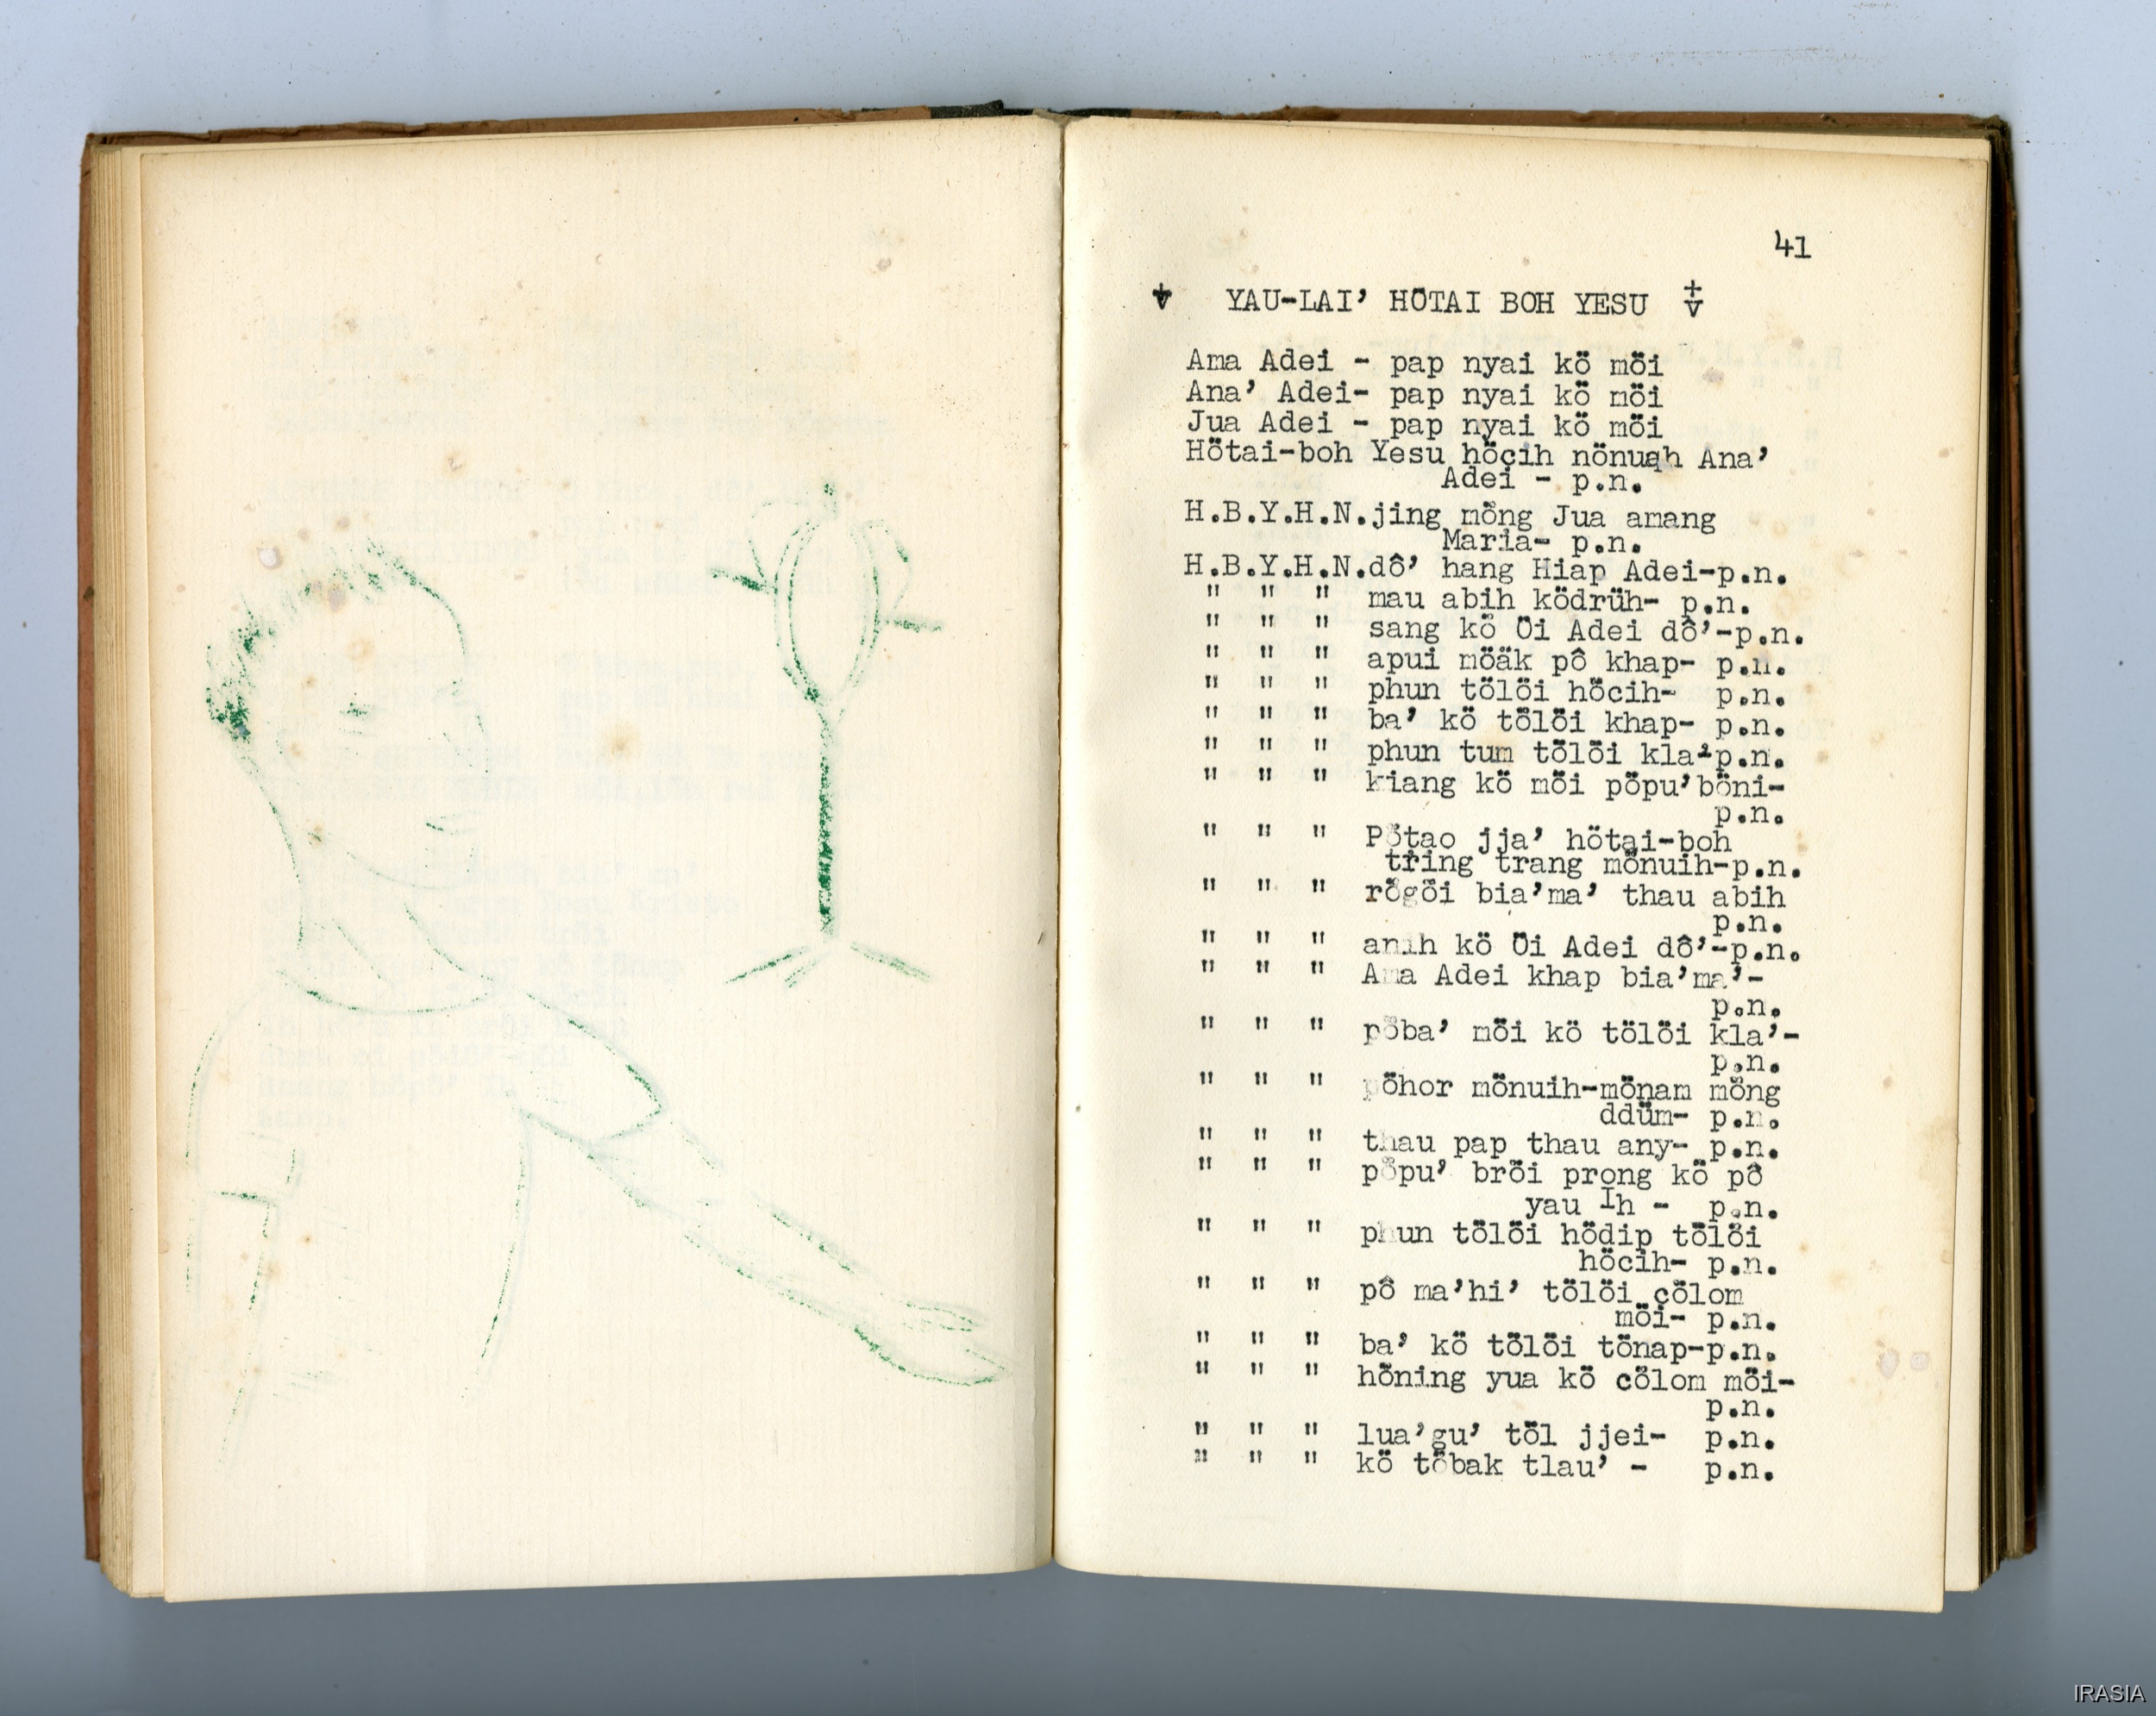 41
YAU-LAI' HÖTAI BOH YESU
Ama Adei - pap nyai kö möi
Ana' Adei- pap nyai kö möi
Jua Adei - pap nyai kö möi
Hötai-boh Yesu höcih nönuah Ana'
Adei - p.n.
H.B.Y.H.N.jing mông Jua amang
Maria- p.n.
H.B.Y.H.N.dô' hang Hiap Adei-p.n.
" " " mau abih ködrüh- p.n.
" " " sang kö Öi Adei dô'-p.n.
" " " apui möäk pô khap- p.n.
" " " phun tölöi höcih- p.n.
" " " ba' kö tölöi khap- p.n.
" " " phun tum tölöi kla'-p.n.
" " " kiang kö möi pöpu'böni-
p.n.
" " " Pötao jja' hötai-boh
tring trang mönuih-p.n.
" " " rögöi bia'ma' thau abih
p.n.
" " " anih kö Öi Adei dô'-p.n.
" " " Ama Adei khap bia'ma'-
p.n.
" " " pöba' möi kö tölöi kla'-
p.n.
" " " pöhor mönuih-mönam mông
ddüm- p.n.
" " " thau pap thau any- p.n.
" " " pöpu' bröi prong kö pô
yau Ih - p.n.
" " " phun tölöi hödip tölöi
höcih- p.n.
" " " pô ma'hi' tölöi cölom
möi- p.n.
" " " ba' kö tölöi tönap-p.n.
" " " höning yua kö cölom möi-
p.n.
" " " lua'gu' töl jjei- p.n.
" " " kö töbak tlau' - p.n.
IRASIA